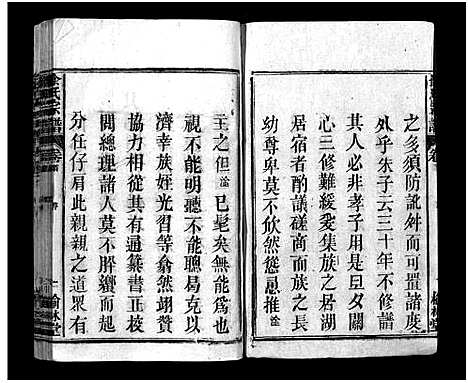 之多須防訛舛而可置諸度
外乎朱子云三十年不修譜
其人必非孝子用是旦夕關
心三修難緩爰集族之居湖
居宿者酌議磋商而族之長
幼尊卑莫不忻忻愈推
主之但 已髦矣無能爲也
視不能明聽不能聰曷克以
濟幸族姪光習等翕然翊贊
協力相從其有通纂書正校
閱總理諸人莫不胼臠而趨
分任仔肩此親親之道眾有
氏宗譜
卷首
一
榆林堂